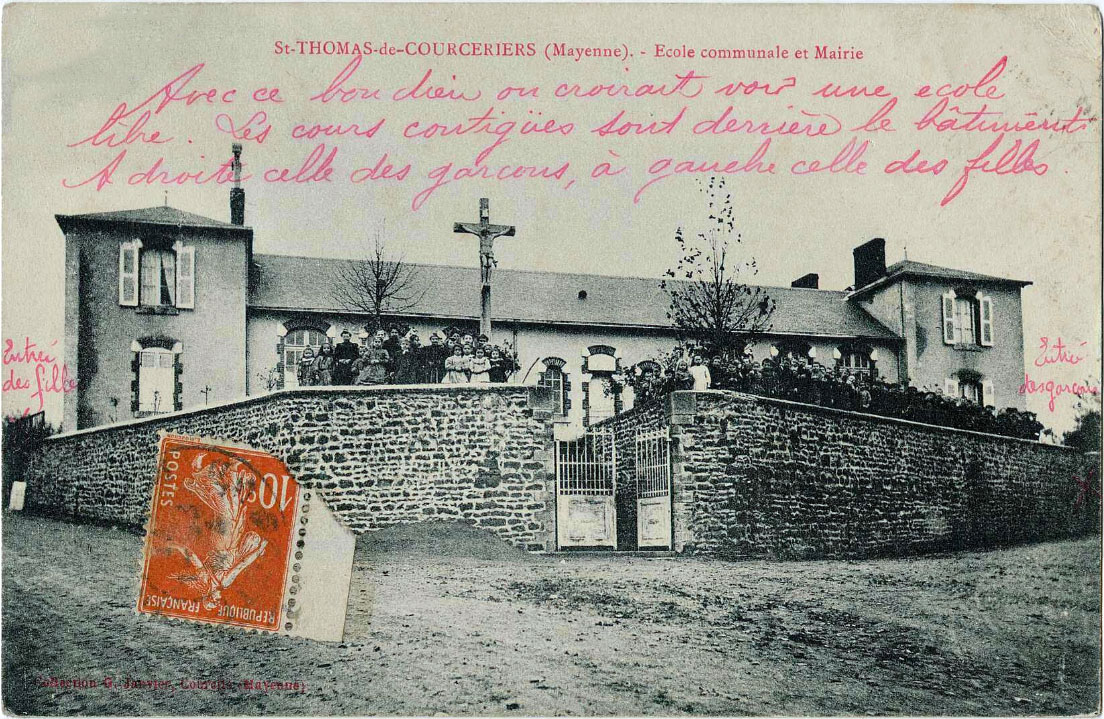 St-THOMAS-de-COURCERIERS (Mayenne). - Ecole communale et Mairie
Avec ce bon dieu on croirait voir une ecole
libre. Les cours contigües sont derrière le bâtiments
A droite celle des garcons, à gauche celle des filles.
Entrée
des filles
Entrée
des garcons
10c
POSTES
REPUBLIQUE FRANÇAISE
Collection G. Janvier, Courcité (Mayenne)